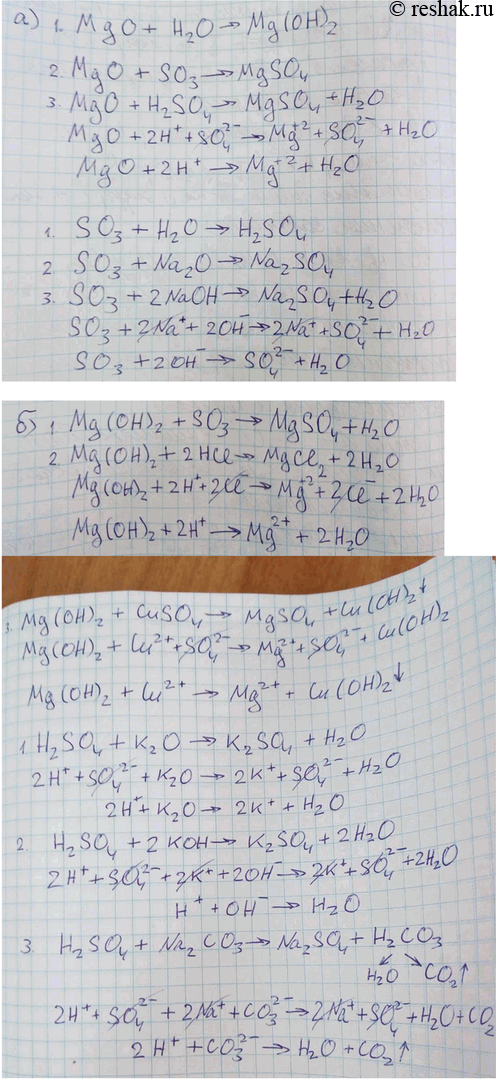 © reshak.ru
а) 1. MgO + H₂O → Mg(OH)₂
2. MgO + SO₃ → MgSO₄
3. MgO + H₂SO₄ → MgSO₄ + H₂O
MgO + 2H⁺ + SO₄²⁻ → Mg⁺² + SO₄²⁻ + H₂O
MgO + 2H⁺ → Mg⁺² + H₂O
1. SO₃ + H₂O → H₂SO₄
2. SO₃ + Na₂O → Na₂SO₄
3. SO₃ + 2NaOH → Na₂SO₄ + H₂O
SO₃ + 2Na⁺ + 2OH⁻ → 2Na⁺ + SO₄²⁻ + H₂O
SO₃ + 2OH⁻ → SO₄²⁻ + H₂O
б) 1. Mg(OH)₂ + SO₃ → MgSO₄ + H₂O
2. Mg(OH)₂ + 2HCl → MgCl₂ + 2H₂O
Mg(OH)₂ + 2H⁺ + 2Cl⁻ → Mg⁺² + 2Cl⁻ + 2H₂O
Mg(OH)₂ + 2H⁺ → Mg²⁺ + 2H₂O
3. Mg(OH)₂ + CuSO₄ → MgSO₄ + Cu(OH)₂↓
Mg(OH)₂ + Cu²⁺ + SO₄²⁻ → Mg²⁺ + SO₄²⁻ + Cu(OH)₂
Mg(OH)₂ + Cu²⁺ → Mg²⁺ + Cu(OH)₂↓
1. H₂SO₄ + K₂O → K₂SO₄ + H₂O
2H⁺ + SO₄²⁻ + K₂O → 2K⁺ + SO₄²⁻ + H₂O
2H⁺ + K₂O → 2K⁺ + H₂O
2. H₂SO₄ + 2KOH → K₂SO₄ + 2H₂O
2H⁺ + SO₄²⁻ + 2K⁺ + 2OH⁻ → 2K⁺ + SO₄²⁻ + 2H₂O
H⁺ + OH⁻ → H₂O
3. H₂SO₄ + Na₂CO₃ → Na₂SO₄ + H₂CO₃
↙ ↘
H₂O CO₂↑
2H⁺ + SO₄²⁻ + 2Na⁺ + CO₃²⁻ → 2Na⁺ + SO₄²⁻ + H₂O + CO₂
2H⁺ + CO₃²⁻ → H₂O + CO₂↑